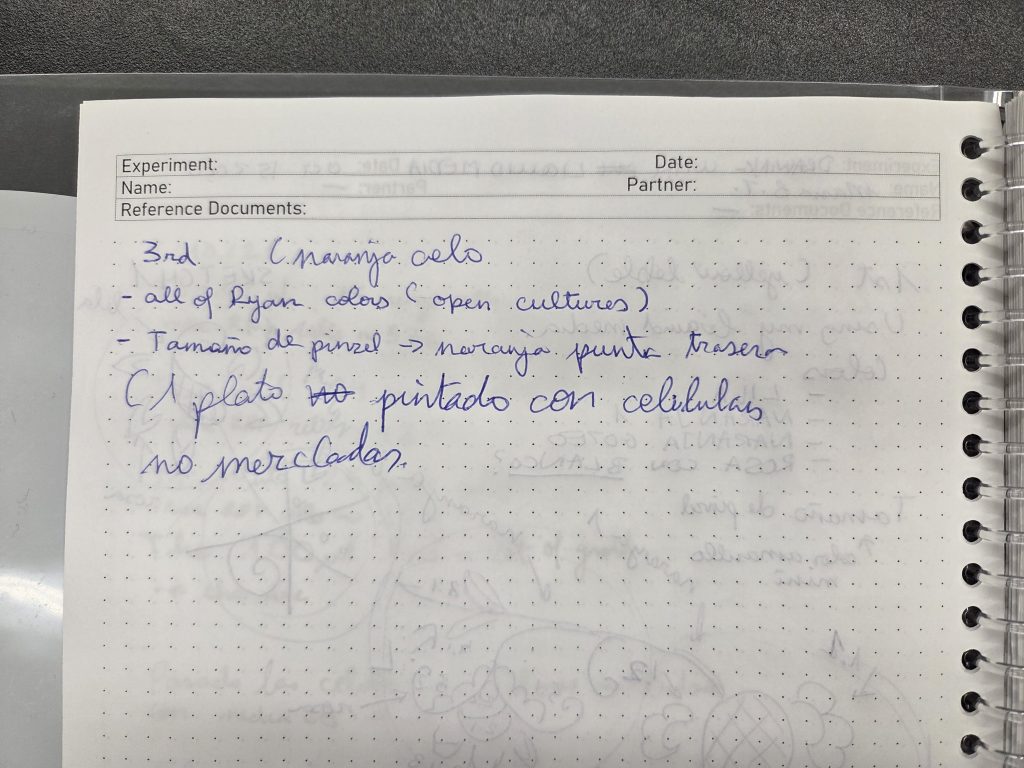 Experiment: Date:
Name: Partner:
Reference Documents:
3rd (naranja celo
- all of Ryan colors (open cultures)
- Tamaño de pinzel → naranja punta trasera
(1 plato no pintado con celulas
no mercladas.